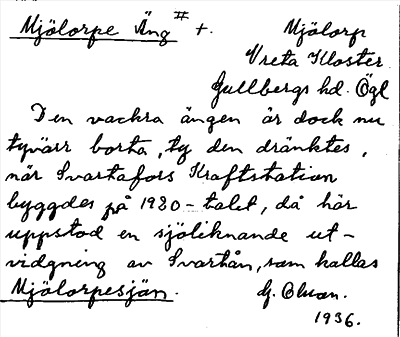 Mjölorpe Äng # +. Mjölorp
Vreta Kloster
Gullbergs hd. Ögl
Den vackra ängen är dock nu
tyvärr borta, ty den dränktes,
när Svartafors Kraftstation
byggdes på 1920-talet, då här
uppstod en sjöliknande ut-
vidgning av Svartån, som kallas
Mjölorpesjön. G. Olsson.
1936.